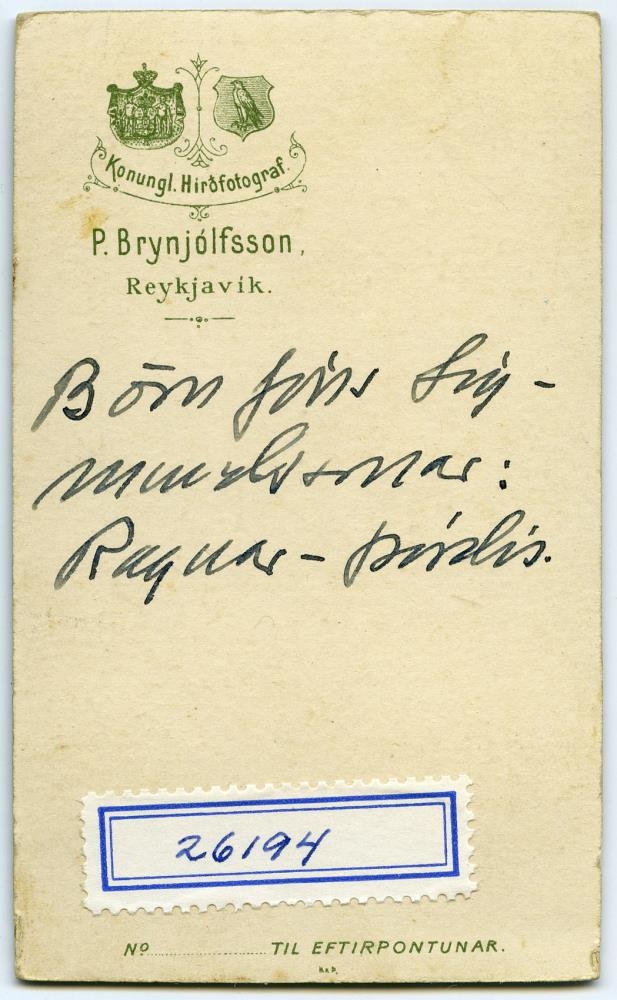 Konungl. Hirðfotograf.
P. Brynjólfsson,
Reykjavík.
Börn Jóns Sig-
mundssonar:
Ragnar - Þórdís.
26194
Nº TIL EFTIRPÖNTUNAR.